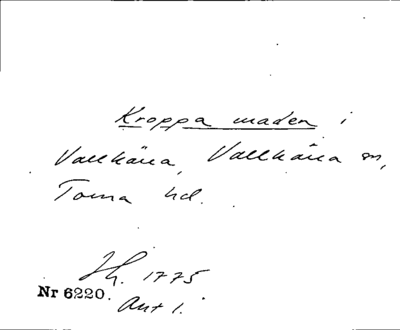 Kroppa maden i
Vallkärra, Vallkärra sn,
Torna hd.
1775
Nr 6220.
Akt 1.